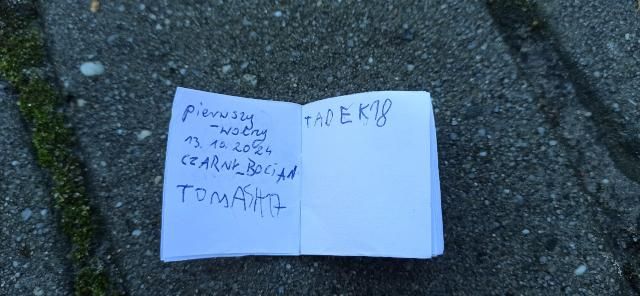 pierwszy
-wolny
13.10.2024
CZARNY_BOCIAN
TOMASH17
TADEK18